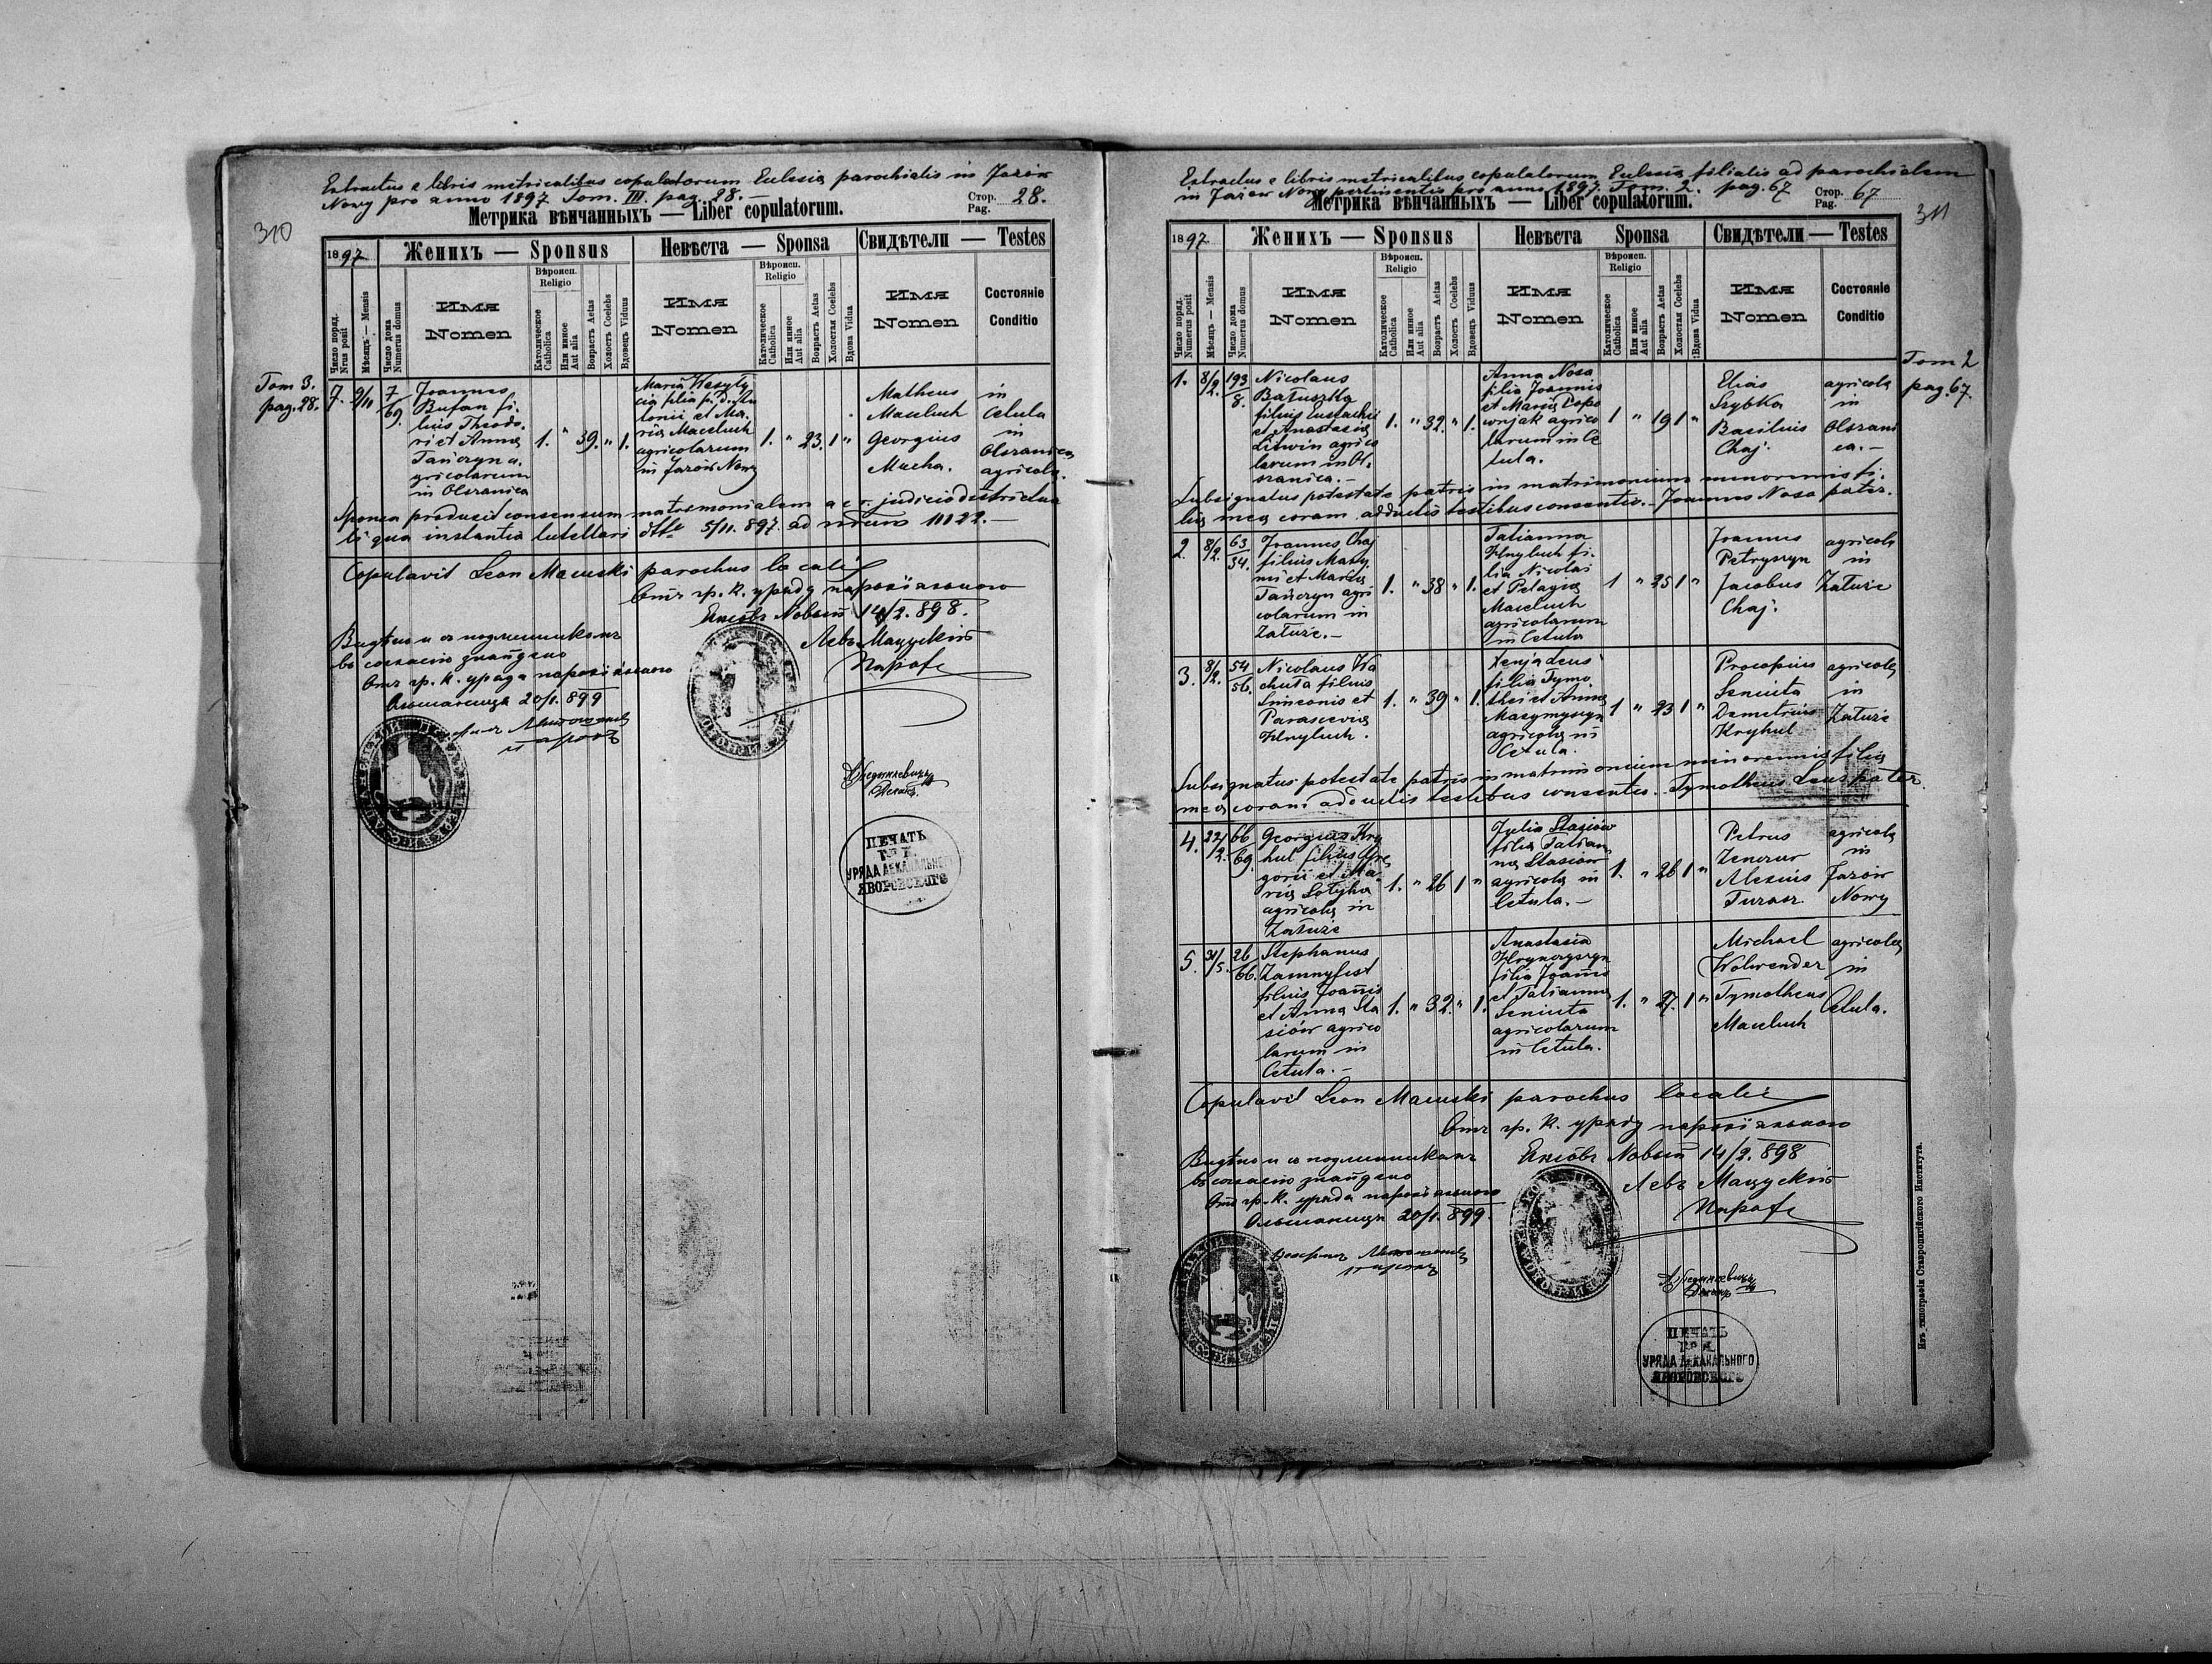 Extractus e libris metricalibus copulatorum Eclesiæ parochialis in Jazów
Nowy pro anno 1897 Tom. III. pag. 28. —
Стор. Pag. 28.
310
Метрика вѣнчанныхъ — Liber copulatorum.
1897.
Женихъ — Sponsus
Невѣста — Sponsa
Свидѣтели — Testes
Число поряд. Nrus posit
Мѣсяцъ — Mensis
Число дома Numerus domus
Имя
Nomen
Вѣроисп. Religio
Католическое Catholica
Или иное Aut alia
Возрастъ Aetas
Холостъ Coelebs
Вдовецъ Viduus
Имя
Nomen
Вѣроисп. Religio
Католическое Catholica
Или иное Aut alia
Возрастъ Aetas
Холостая Coelebs
Вдова Vidua
Имя
Nomen
Состояніе
Conditio
Tom 3.
pag. 28.
7. 9/11 7/69.
Joannes
Bufan fi-
lius Theodo-
ri et Annæ
Tańczyn a-
gricolarum
in Olszanica
1. " 39. " 1.
Maria Wasyły
cia filia p. d. An
tonii et Ma-
riæ Maceluch
agricolarum
in Jazów Nowy
1. " 23. 1 "
Matheus
Maceluch
Georgius
Mucha.
in
Cetula
in
Olszanica
agricolæ.
Sponsa produxit consensum matrimonialem a c. r. judicio districtua
li qua instantia tutellari dtto 5/11. 897. ad nrum 11122. —
Copulavit Leon Macuski parochus localis
Отъ гр. к. уряду парохіяльного
Язовъ Новый 14/2. 898.
Левъ Мацускій
Парохъ
Видѣно и съ подлинникомъ
въ согласію знайдено
Отъ гр. к. уряда парохіяльного
Ольшаница 20/1. 899
парохъ
Деканъ.
ПЕЧАТЬ
Гр. К.
УРЯДА ДЕКАНАЛЬНОГО
ЯВОРОВСКОГО
Extractus e libris metricalibus copulatorum Eclesiæ filialis ad parochialem
in Jazów Nowy pertinentis pro anno 1897. Tom. 2. pag. 67
Стор. Pag. 67
311
Метрика вѣнчанныхъ — Liber copulatorum.
1897.
Женихъ — Sponsus
Невѣста Sponsa
Свидѣтели — Testes
Число поряд. Numerus posit
Мѣсяцъ — Mensis
Число дома Numerus domus
Имя
Nomen
Вѣроисп. Religio
Католическое Catholica
Или иное Aut alia
Возрастъ Aetas
Холостъ Coelebs
Вдовецъ Viduus
Имя
Nomen
Вѣроисп. Religio
Католическое Catholica
Или иное Aut alia
Возрастъ Aetas
Холостая Coelebs
Вдова Vidua
Имя
Nomen
Состояніе
Conditio
Tom 2
pag. 67.
1. 8/2. 193/8.
Nicolaus
Batuszka
filius Eustachii
et Anastasiæ
Litwin agrico
larum in Ol-
szanica. —
1. " 32. " 1.
Anna Nosa
filia Joannis
et Mariæ Popo
wnjak agrico
larum in Ce
tula.
1 " 19 1 "
Elias
Szybka
Basilius
Chaj.
agricolæ
in
Olszani
ca. —
Subsignatus potestate patris in matrimonium minorennis fi-
liæ meæ coram adductis testibus consentio. Joannes Nosa pater.
2. 8/2. 63/34.
Joannes Chaj
filius Maxy
mi et Mariæ
Tańczyn agri
colarum in
Załuże. —
1. " 38 " 1.
Tatianna
Hnyluch fi-
lia Nicolai
et Pelagiæ
Maceluch
agricolarum
in Cetula
1 " 25 1 "
Joannes
Petryszyn
Jacobus
Chaj.
agricolæ
in
Załuże
3. 8/2. 54/56.
Nicolaus Wa
chuta filius
Simeonis et
Parasceviæ
Hnyluch.
1. " 39 " 1.
Xenja Leus
filia Tymo
thei et Annæ
Maxymyszyn
agricolæ in
Cetula.
1 " 23 1 "
Procopius
Seniuta
Demetrius
Kryhul
agricolæ
in
Załuże
Subsignatus potestate patris in matrimonium minorennis filiæ
meæ coram adductis testibus consentio. Tymotheus Leus pater.
4. 22/2. 66/69.
Georgius Kry
hul filius Gre
gorii et Ma-
riæ Sotyha
agricolæ in
Załuże
1. " 26 1 "
Julia Stasiów
filia Tatian
næ Stasiow
agricolæ in
Cetula. —
1. " 26 1 "
Petrus
Zenczur
Alexius
Turasz
agricolæ
in
Jazów
Nowy
5. 31/5. 26/66.
Stephanus
Zamnyfest
filius Joannis
et Annæ Sta
siów agrico
larum in
Cetula. —
1. " 32. " 1.
Anastasia
Hrynczyszyn
filia Joannis
et Tatiannæ
Seniuta
agricolarum
in Cetula.
1. " 27. 1 "
Michael
Wolwender
Tymotheus
Maceluch
agricolæ
in
Cetula.
Copulavit Leon Macuski parochus localis
Отъ гр. к. уряду парохіяльного
Язовъ Новый 14/2. 898
Левъ Мацускій
Парохъ
Видѣно и съ подлинникомъ
въ согласію знайдено
Отъ гр. к. уряда парохіяльного
Ольшаница 20/1. 899.
парохъ
Деканъ
ПЕЧАТЬ
Гр. К.
УРЯДА ДЕКАНАЛЬНОГО
ЯВОРОВСКОГО
Изъ типографіи Ставропигійского Института.